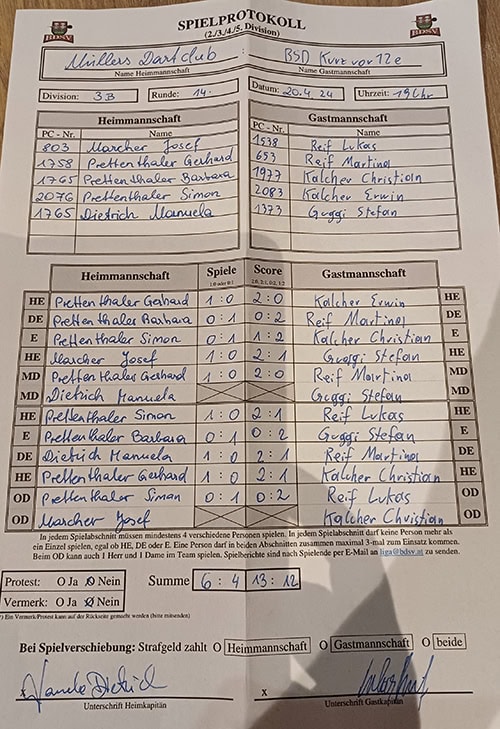 SPIELPROTOKOLL
(2./3./4./5. Division)
BDSV BDSV
Müllers Dartclub : BSD Kurz vor 12e
Name Heimmannschaft Name Gastmannschaft
Division: 3B Runde: 14. Datum: 20.4.24 Uhrzeit: 19 Uhr
Heimmannschaft Gastmannschaft
PC - Nr. Name PC - Nr. Name
803 Marcher Josef 1538 Reif Lukas
1758 Prettenthaler Gerhard 653 Reif Martina
1765 Prettenthaler Barbara 1977 Kalcher Christian
2076 Prettenthaler Simon 2083 Kalcher Erwin
1765 Dietrich Manuela 1373 Guggi Stefan
Heimmannschaft Spiele Score Gastmannschaft
1:0 oder 0:1 2:0, 2:1, 0:2, 1:2
HE Prettenthaler Gerhard 1 : 0 2 : 0 Kalcher Erwin HE
DE Prettenthaler Barbara 0 : 1 0 : 2 Reif Martina DE
E Prettenthaler Simon 0 : 1 1 : 2 Kalcher Christian E
HE Marcher Josef 1 : 0 2 : 1 Guggi Stefan HE
MD Prettenthaler Gerhard 1 : 0 2 : 0 Reif Martina MD
MD Dietrich Manuela Guggi Stefan MD
HE Prettenthaler Simon 1 : 0 2 : 1 Reif Lukas HE
E Prettenthaler Barbara 0 : 1 0 : 2 Guggi Stefan E
DE Dietrich Manuela 1 : 0 2 : 1 Reif Martina DE
HE Prettenthaler Gerhard 1 : 0 2 : 1 Kalcher Christian HE
OD Prettenthaler Simon 0 : 1 0 : 2 Reif Lukas OD
OD Marcher Josef Kalcher Christian OD
In jedem Spielabschnitt müssen mindestens 4 verschiedene Personen spielen. In jedem Spielabschnitt darf keine Person mehr als
ein Einzel spielen, egal ob HE, DE oder E. Eine Person darf in beiden Abschnitten zusammen maximal 3-mal zum Einsatz kommen.
Beim OD kann auch 1 Herr und 1 Dame im Team spielen. Spielberichte sind nach Spielende per E-Mail an liga@bdsv.at zu senden.
Protest: O Ja O Nein Summe 6 : 4 13 : 12
Vermerk: O Ja O Nein
*) Ein Vermerk/Protest kann auf der Rückseite gemacht werden (bitte mitsenden)
Bei Spielverschiebung: Strafgeld zahlt O Heimmannschaft O Gastmannschaft O beide
x Manuela Dietrich x
Unterschrift Heimkapitän Unterschrift Gastkapitän